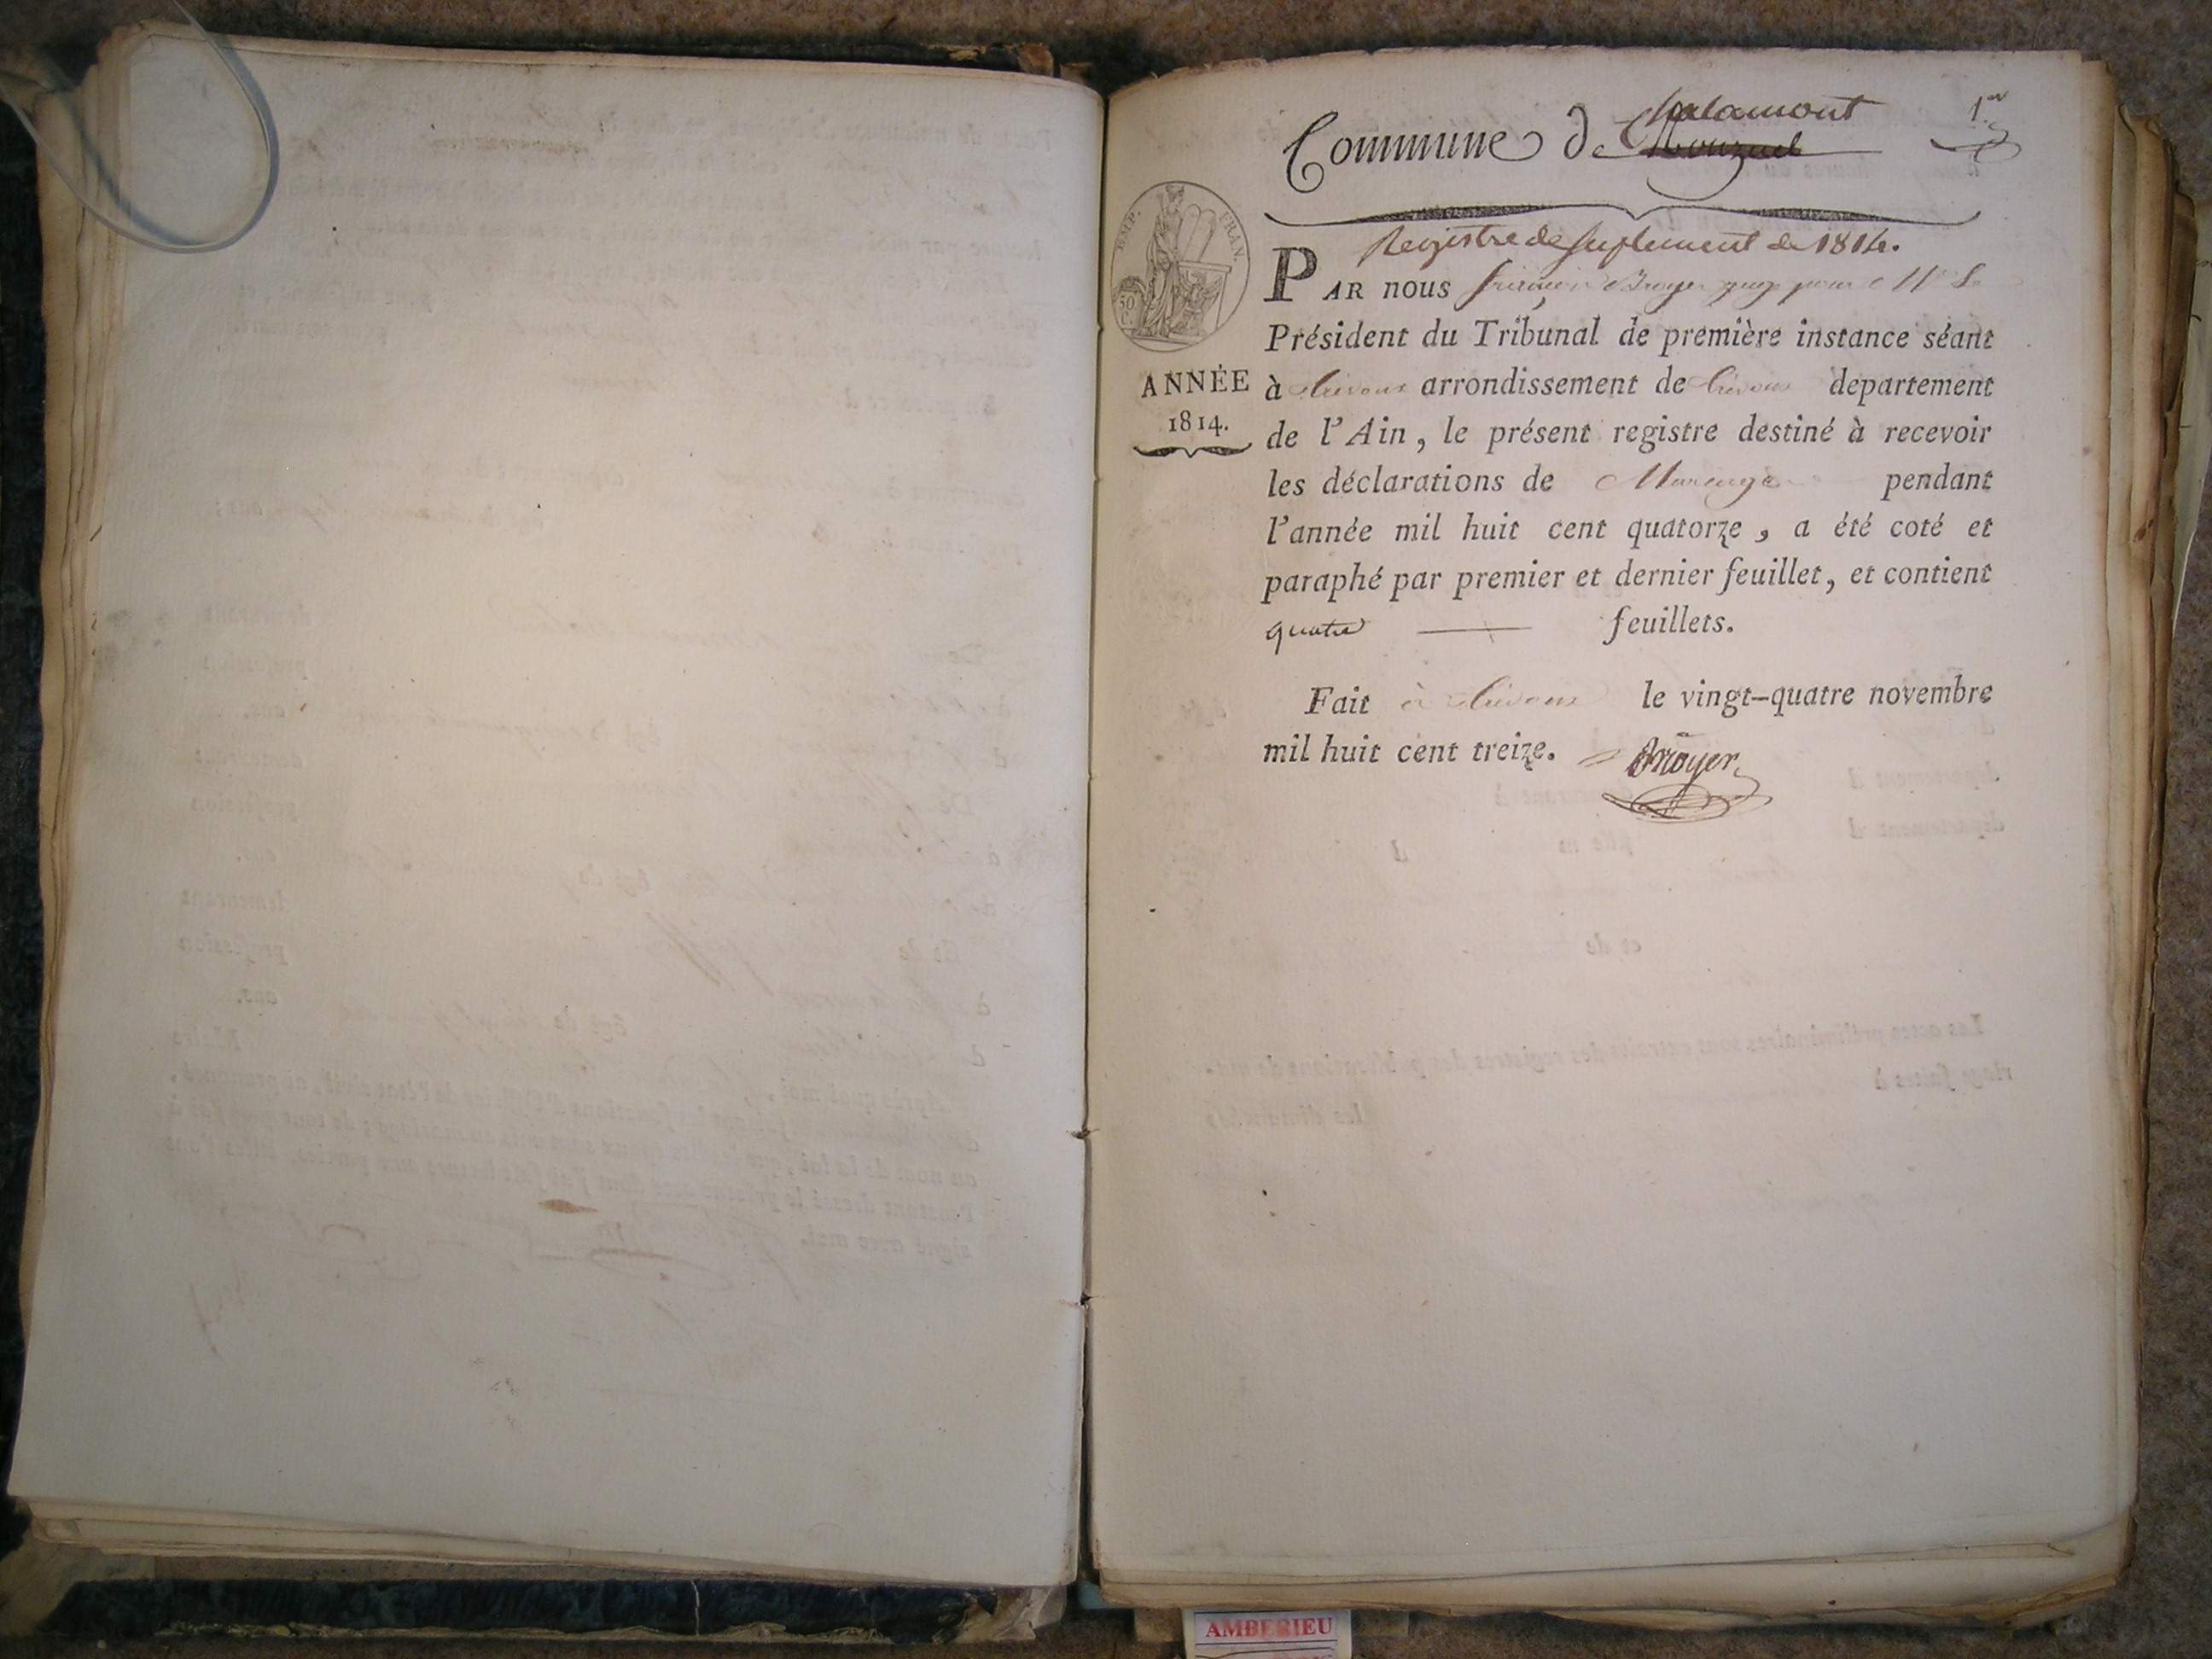 Commune de Chalamont
1.er
EMP. FRAN.
50 C.
Registre de suplement de 1814.
PAR nous Broyer juge pour Mr Le
Président du Tribunal de première instance séant
ANNÉE
1814.
à trévoux arrondissement de trévoux departement
de l'Ain, le présent registre destiné à recevoir
les déclarations de Mariage pendant
l'année mil huit cent quatorze, a été coté et
paraphé par premier et dernier feuillet, et contient
quatre feuillets.
Fait à trévoux le vingt-quatre novembre
mil huit cent treize. Broyer
AMBERIEU